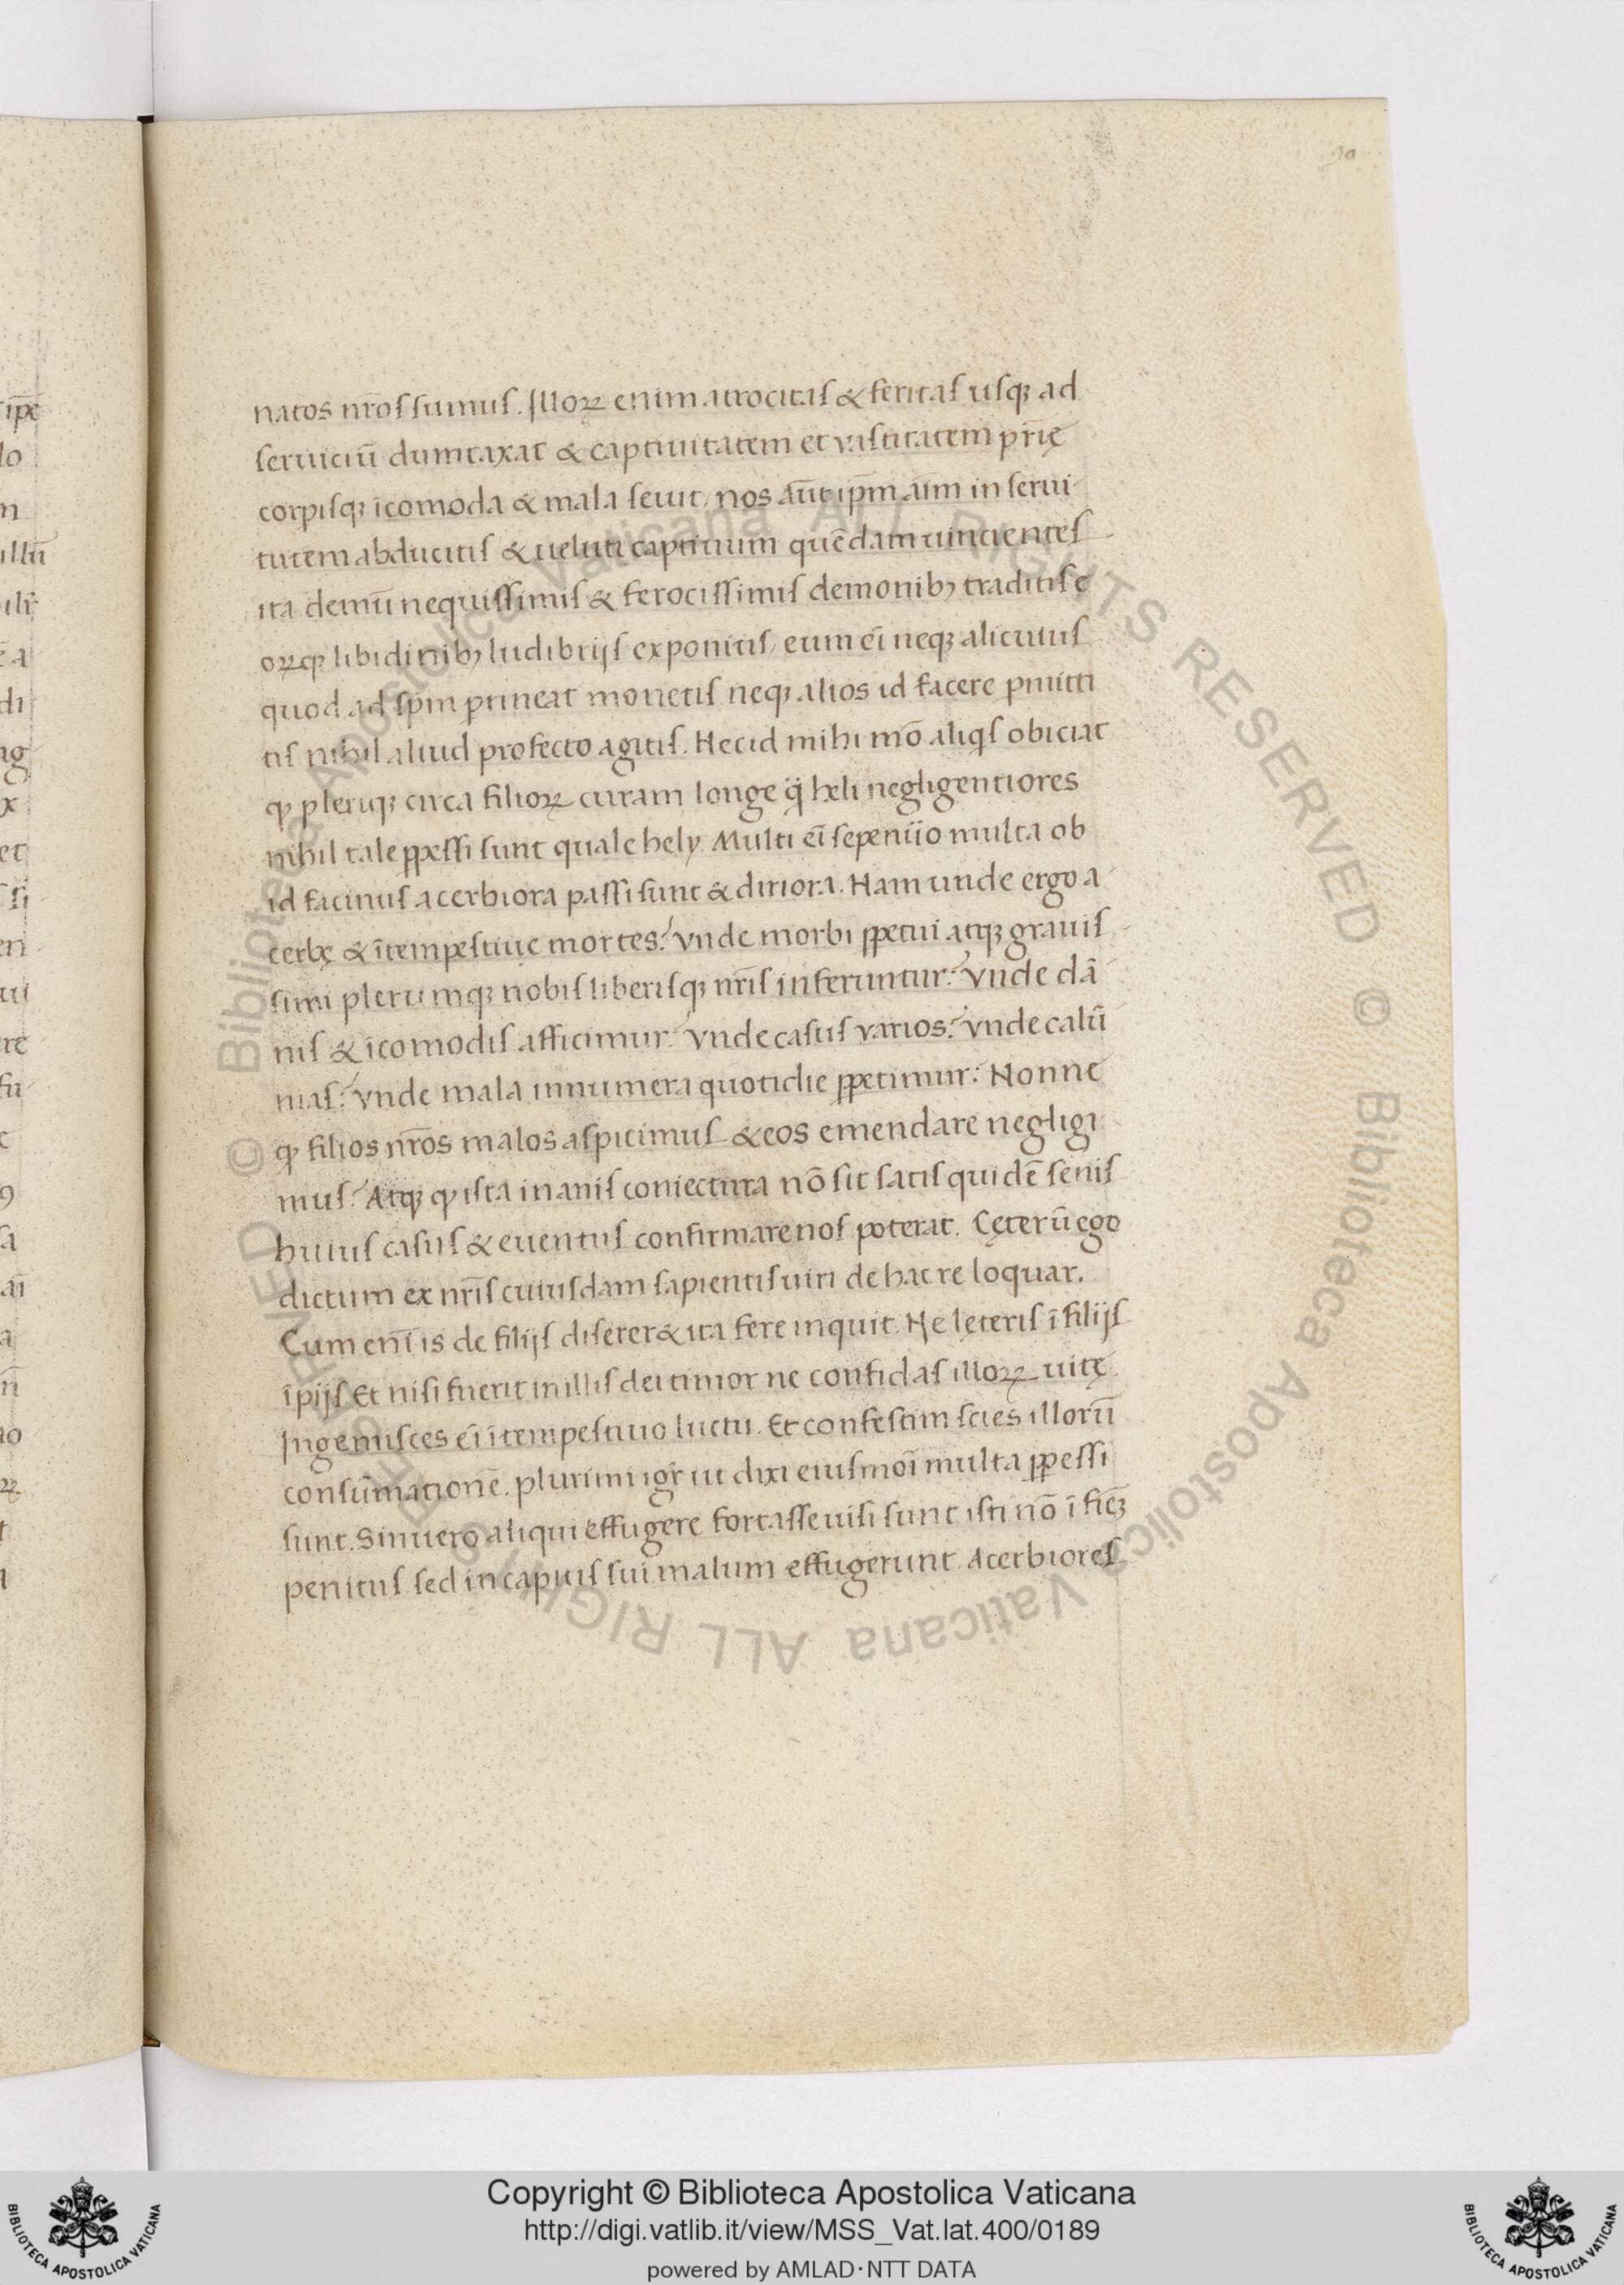 natos nr̄os sumus. Illoꝝ enim atrocitas & feritas usqꝫ ad
seruiciū dumtaxat & captiuitatem et vastitatem pr̄ię
corpisqꝫ īcomoda & mala seuit, nos aūt ip̄m aīm in serui
tutem abducitis & ueluti captiuum quēdam uincientes
ita demū nequissimis & ferocissimis demonibꝫ traditis e
oꝝqꝫ libidinibꝫ ludibrijs exponitis, eum eī neqꝫ alicuius
quod ad sp̄m ꝑtineat monetis neqꝫ alios id facere ꝑmitti
tis nihil aliud profecto agitis. Nec id mihi mō aliqͥs obiciat
ꝙ pleriqꝫ circa filioꝝ curam longe q̄ heli negligentiores
nihil tale ꝑpessi sunt quale hely. Multi eī sepenūo multa ob
id facinus acerbiora passi sunt & diriora. Nam unde ergo a
cerbę & ītempestiuę mortes? vnde morbi ꝑpetui atqꝫ grauis
simi plerumqꝫ nobis liberisqꝫ nr̄is inferuntur? vnde dā
nis & īcomodis afficimur? vnde casus varios? vnde calū
nias? vnde mala innumera quotidie ꝑpetimur? Nonne
ꝙ filios nr̄os malos aspicimus & eos emendare negligi
mus? Atqꝫ ꝙ ista inanis coniectura nō sit satis quidē senis
huius casus & euentus confirmare nos poterat. Cęterū ego
dictum ex nr̄is cuiusdam sapientis uiri de hac re loquar.
Cum enī is de filijs disereret & ita fere inquit. Ne lęteris ī filijs
īpijs Et nisi fuerit in illis dei timor ne confidas illoꝝ uitę
Ingemisces eī ītempestiuo luctu. Et confestim scies illorū
consūmationē. plurimi igr̄ ut dixi eiusmoī multa ꝑpessi
sunt. Sin uero aliqui effugere fortasse uisi sunt isti nō ī
penitus sed in capitis sui malum effugerunt. Acerbiores